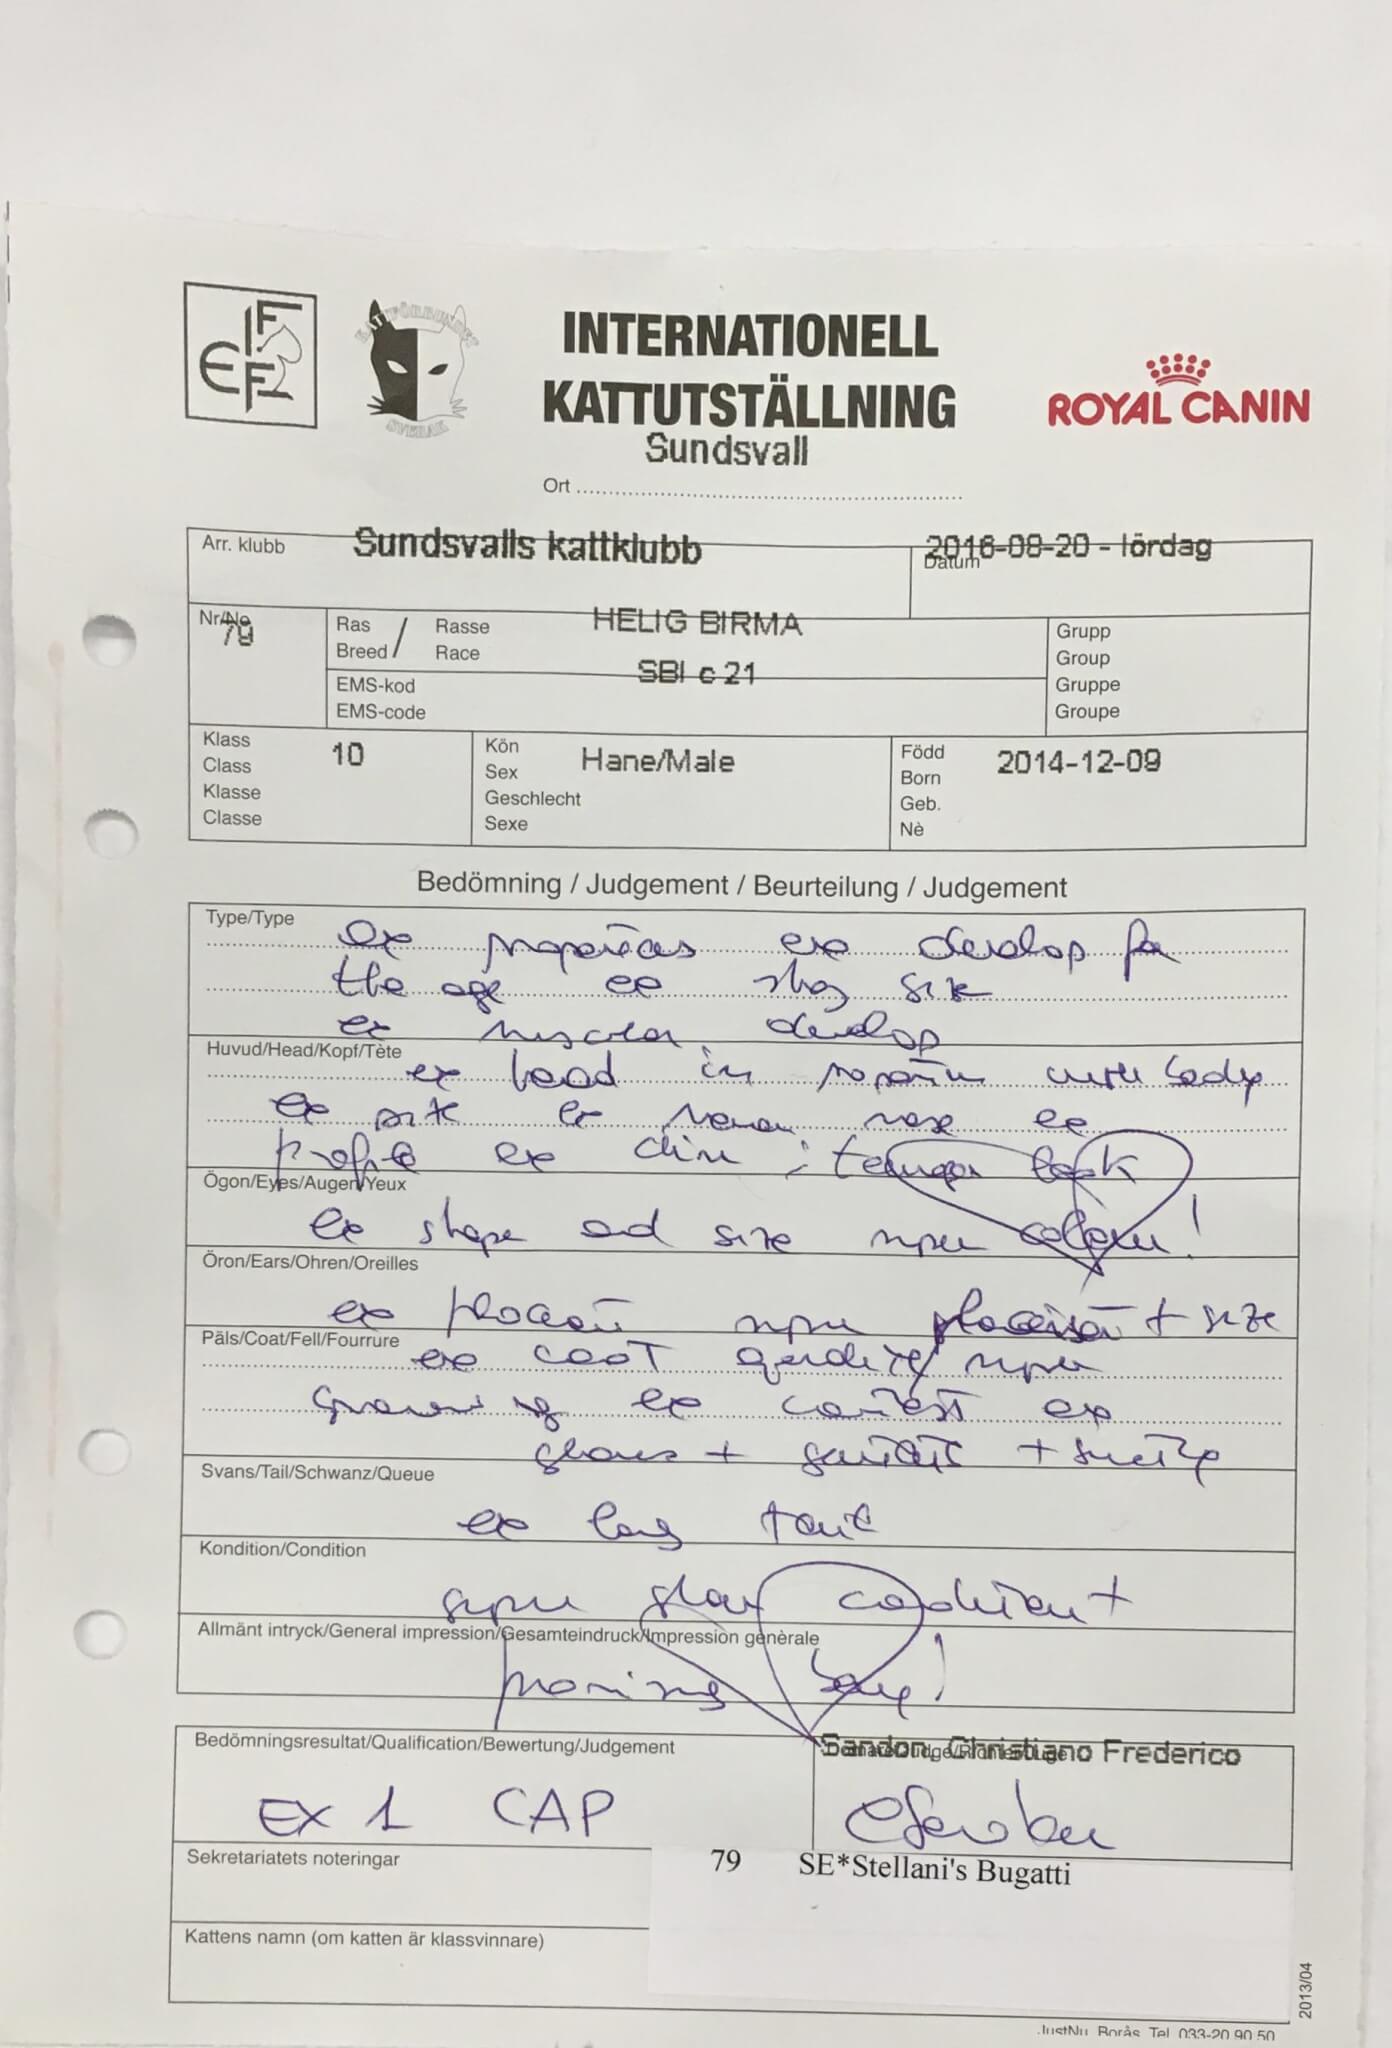 FIFe
KATTFÖRBUNDET
SVERAK
INTERNATIONELL
KATTUTSTÄLLNING
ROYAL CANIN
Sundsvall
Ort
Arr. klubb Sundsvalls kattklubb
2016-08-20 - lördag
Datum
Nr/No 79
Ras / Rasse HELIG BIRMA
Breed Race
EMS-kod SBI c 21
EMS-code
Grupp
Group
Gruppe
Groupe
Klass 10
Class
Klasse
Classe
Kön Hane/Male
Sex
Geschlecht
Sexe
Född 2014-12-09
Born
Geb.
Nè
Bedömning / Judgement / Beurteilung / Judgement
Type/Type
ex ex develop for
the age ex size
ex develop
Huvud/Head/Kopf/Tète
ex head in with body
ex size ex nose ex
profile ex chin look
Ögon/Eyes/Augen/Yeux
ex shape and size super colour!
Öron/Ears/Ohren/Oreilles
ex super + size
Päls/Coat/Fell/Fourrure
ex coat quality super
ex ex
+ +
Svans/Tail/Schwanz/Queue
ex long tail
Kondition/Condition
super show condition +
Allmänt intryck/General impression/Gesamteindruck/Impression gènèrale
boy!
Bedömningsresultat/Qualification/Bewertung/Judgement
EX 1 CAP
Sandon, Christiano Frederico
Sekretariatets noteringar
79 SE*Stellani's Bugatti
Kattens namn (om katten är klassvinnare)
2013/04
JustNu, Borås Tel. 033-20 90 50